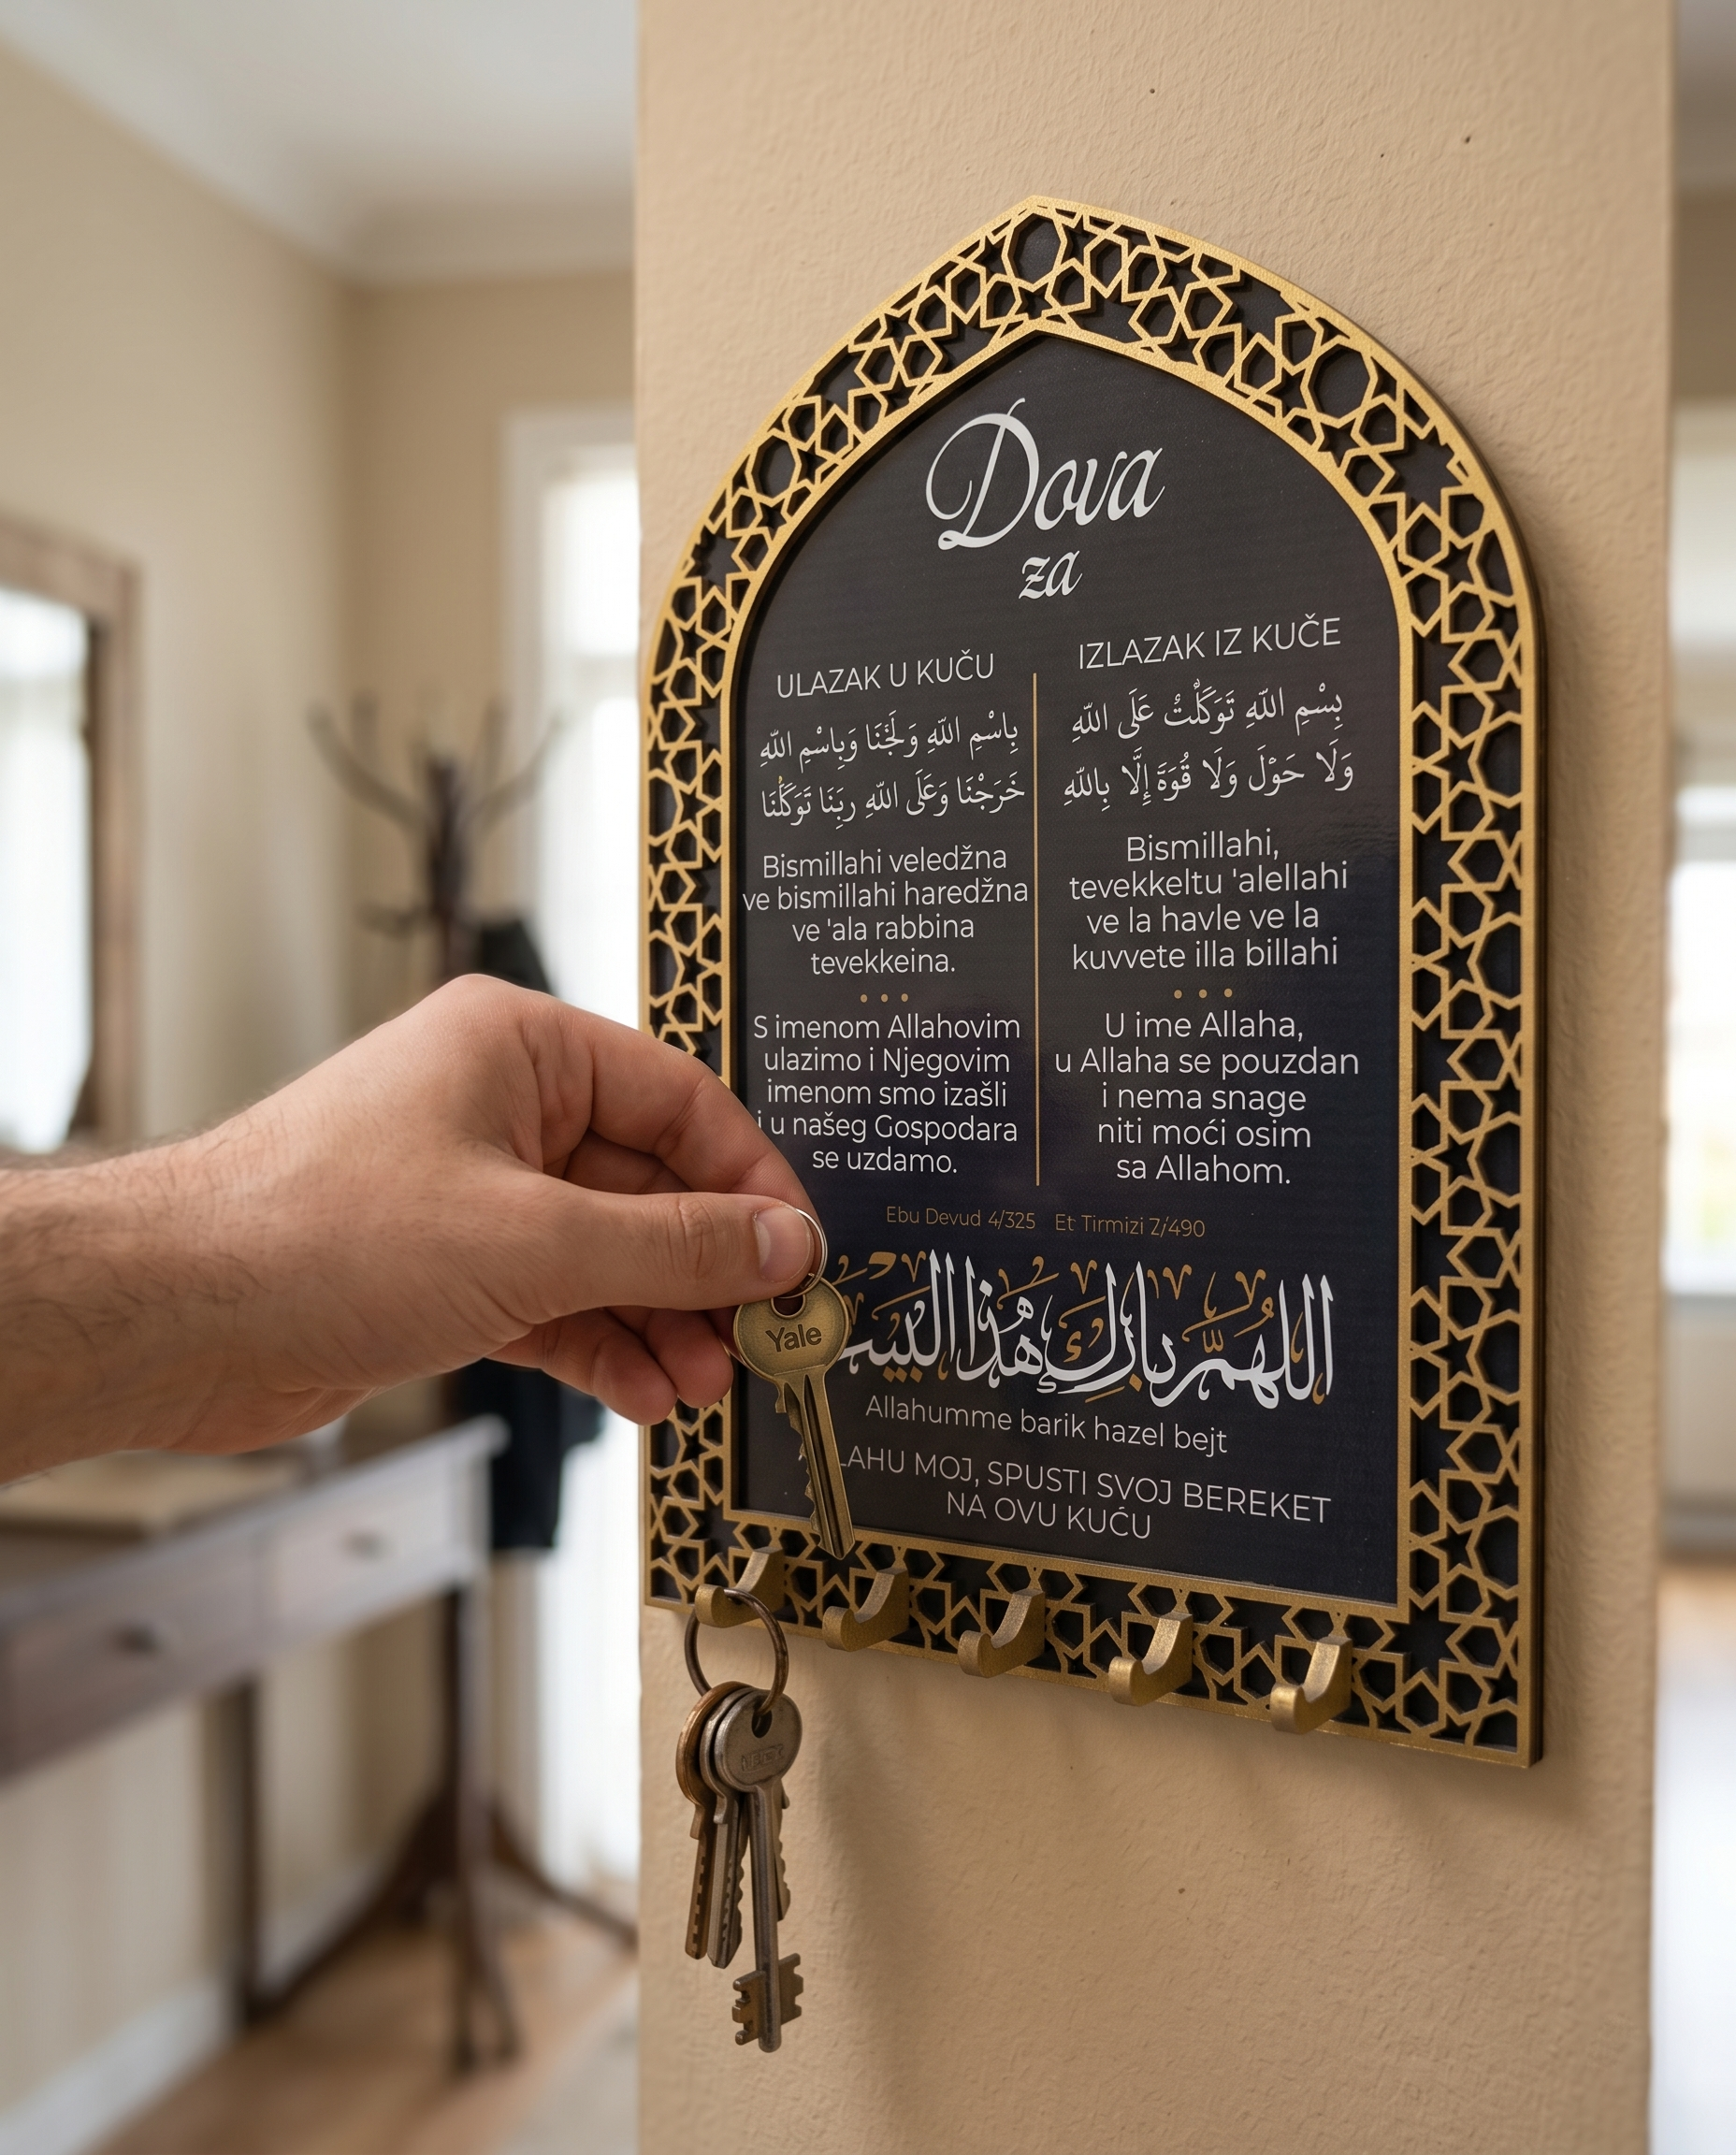 Dova
za
ULAZAK U KUČU
بِاسْمِ اللّهِ وَلَجْنَا وَبِاسْمِ اللّهِ
خَرَجْنَا وَعَلَى اللّهِ رَبِّنَا تَوَكَّلْنَا
Bismillahi veledžna
ve bismillahi haredžna
ve 'ala rabbina
tevekkeina.
S imenom Allahovim
ulazimo i Njegovim
imenom smo izašli
i u našeg Gospodara
se uzdamo.
IZLAZAK IZ KUČE
بِسْمِ اللّهِ تَوَكَّلْتُ عَلَى اللّهِ
وَلَا حَوْلَ وَلَا قُوَةَ إِلَّا بِاللّهِ
Bismillahi,
tevekkeltu 'alellahi
ve la havle ve la
kuvvete illa billahi
U ime Allaha,
u Allaha se pouzdan
i nema snage
niti moći osim
sa Allahom.
Ebu Devud 4/325 Et Tirmizi 7/490
اللهمّ بارك هذا البيت
Allahumme barik hazel bejt
LAHU MOJ, SPUSTI SVOJ BEREKET
NA OVU KUĆU
Yale